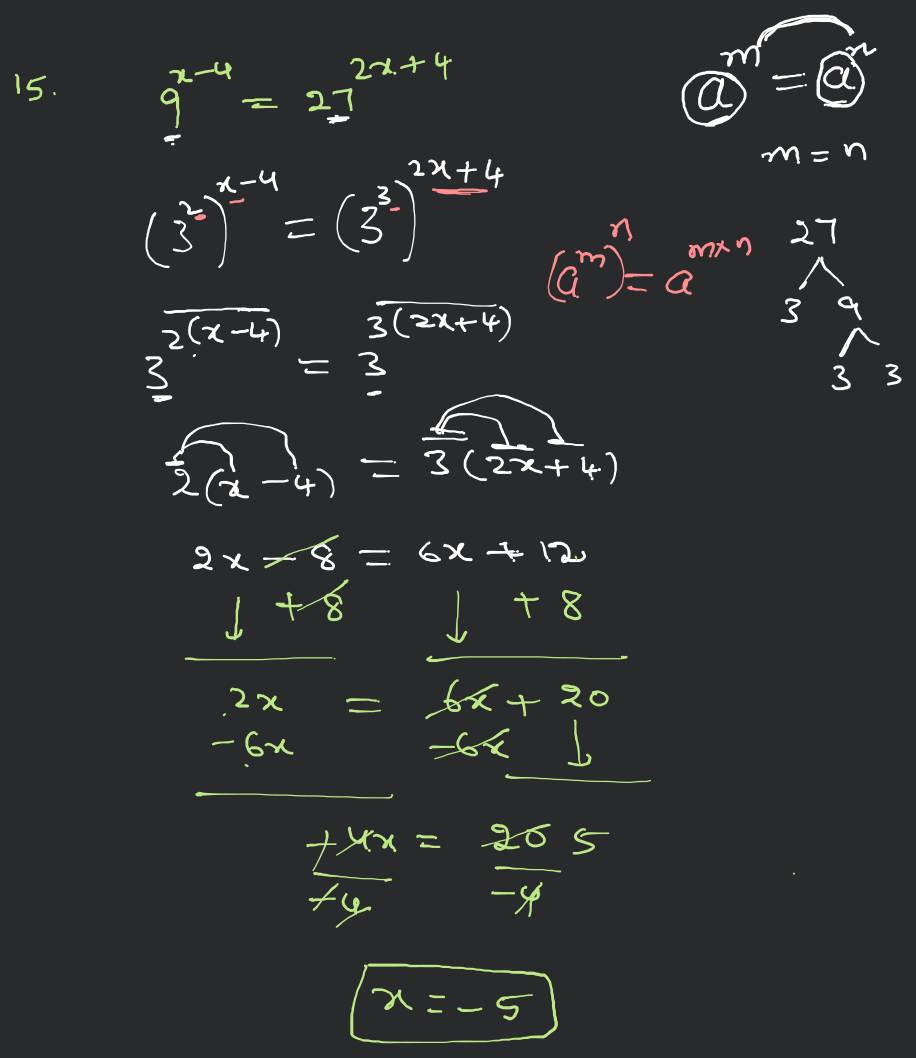 15. 9^(x-4) = 27^(2x+4)
a^m = a^n
m = n
(3^2)^(x-4) = (3^3)^(2x+4)
(a^m)^n = a^(m×n)
27
3 9
3 3
3^(2(x-4)) = 3^(3(2x+4))
2(x-4) = 3(2x+4)
2x - 8 = 6x + 12
↓ + 8 ↓ + 8
2x = 6x + 20
-6x -6x ↓
-4x = 20 5
-4 -4
x = -5